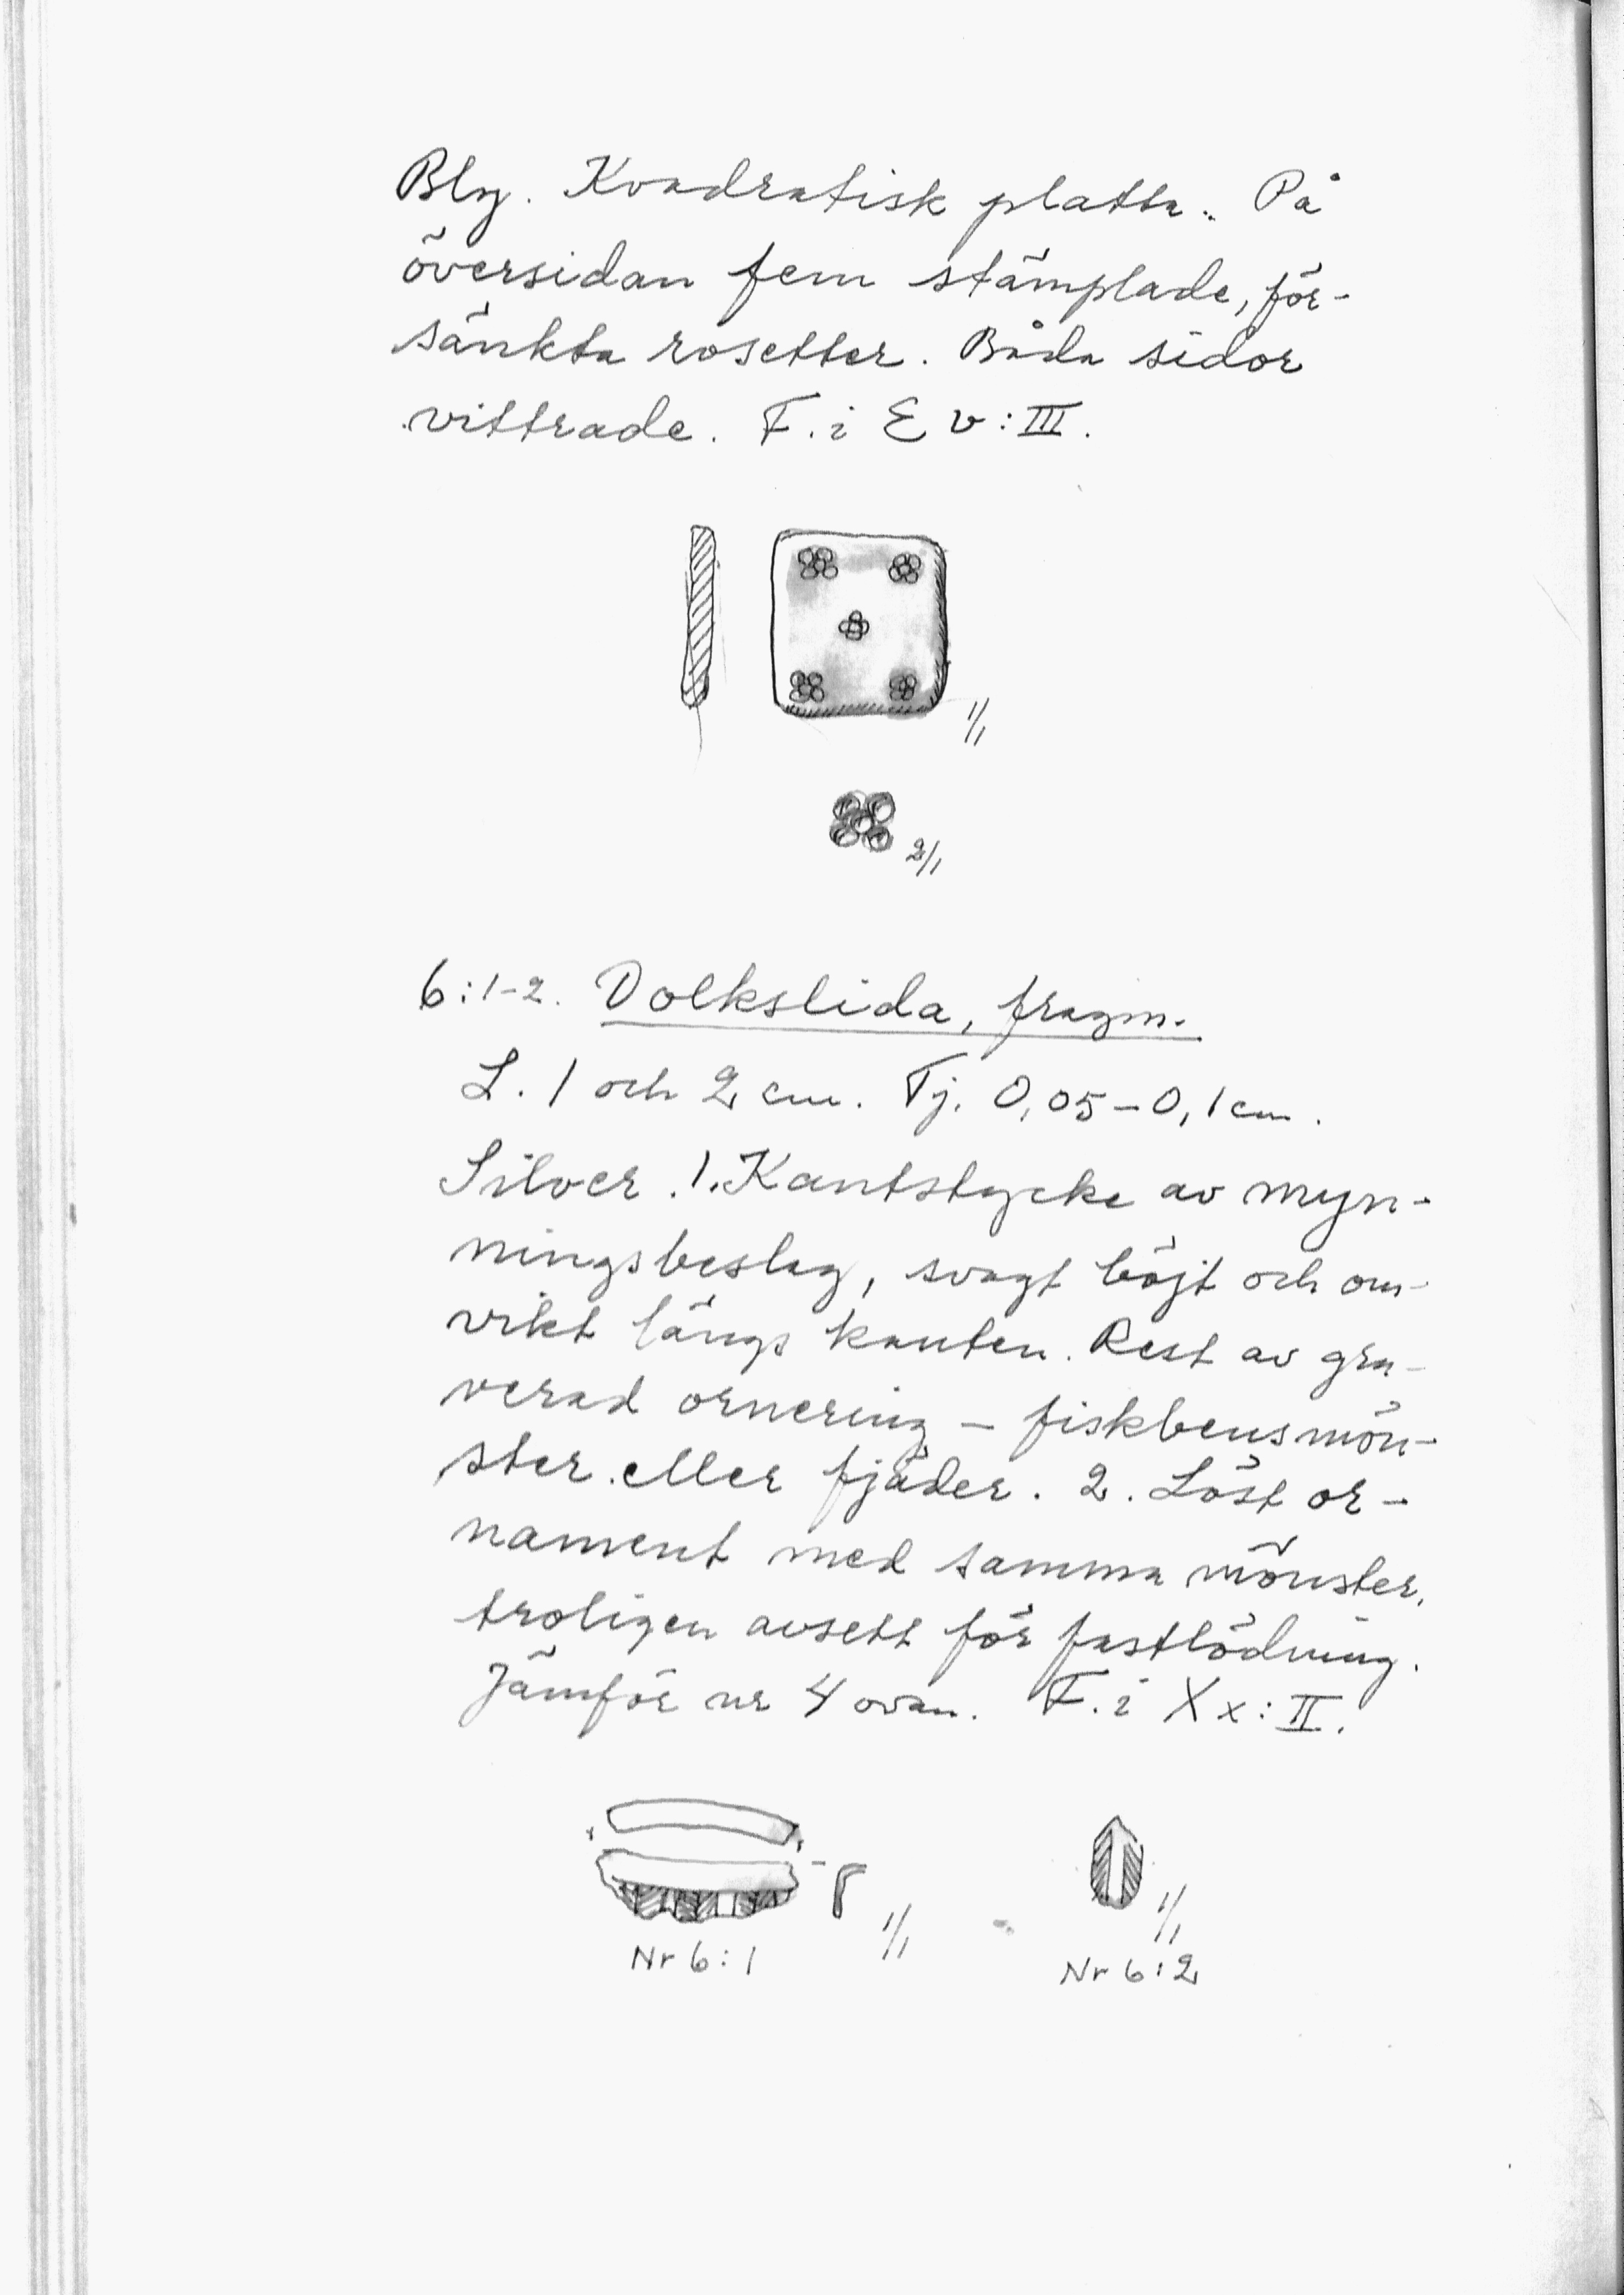 Bly. Kvadratisk platta. På
översidan fem stämplade, för-
sänkta rosetter. Båda sidor
vittrade. F. i E v: III.
1/1
2/1
6:1-2. Dolkslida, fragm.
L. 1 och 2 cm. Tj. 0,05-0,1 cm.
Silver. 1. Kantstycke av myn-
ningsbeslag, svagt böjt och om-
vikt längs kanten. Rest av gra-
verad ornering - fiskbensmön-
ster eller fjäder. 2. Löst or-
nament med samma mönster,
troligen avsett för fastlödning.
Jämför nr 4 ovan. F. i X x: II.
1/1
1/1
Nr 6:1
Nr 6:2